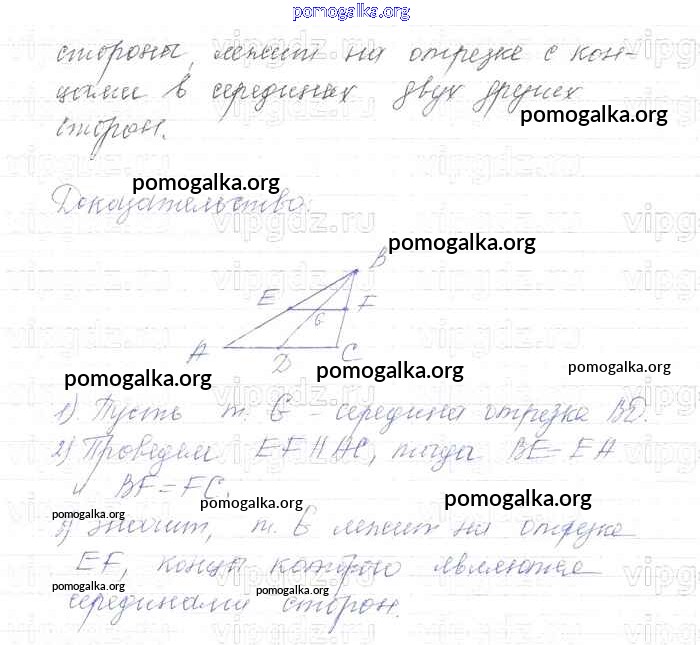 pomogalka.org
стороны, лежит на отрезке с кон-
цами в серединах двух других
pomogalka.org
сторон.
pomogalka.org
Доказательство:
pomogalka.org
B
E F
G
A D C
pomogalka.org pomogalka.org pomogalka.org
1) Пусть т. G – середина отрезка BD.
2) Проведем EF || AC, тогда BE = EA
и BF = FC.
pomogalka.org pomogalka.org pomogalka.org
3) Значит, т. G лежит на отрезке
EF, концы которого являются
pomogalka.org pomogalka.org
серединами сторон.
vipgdz.ru